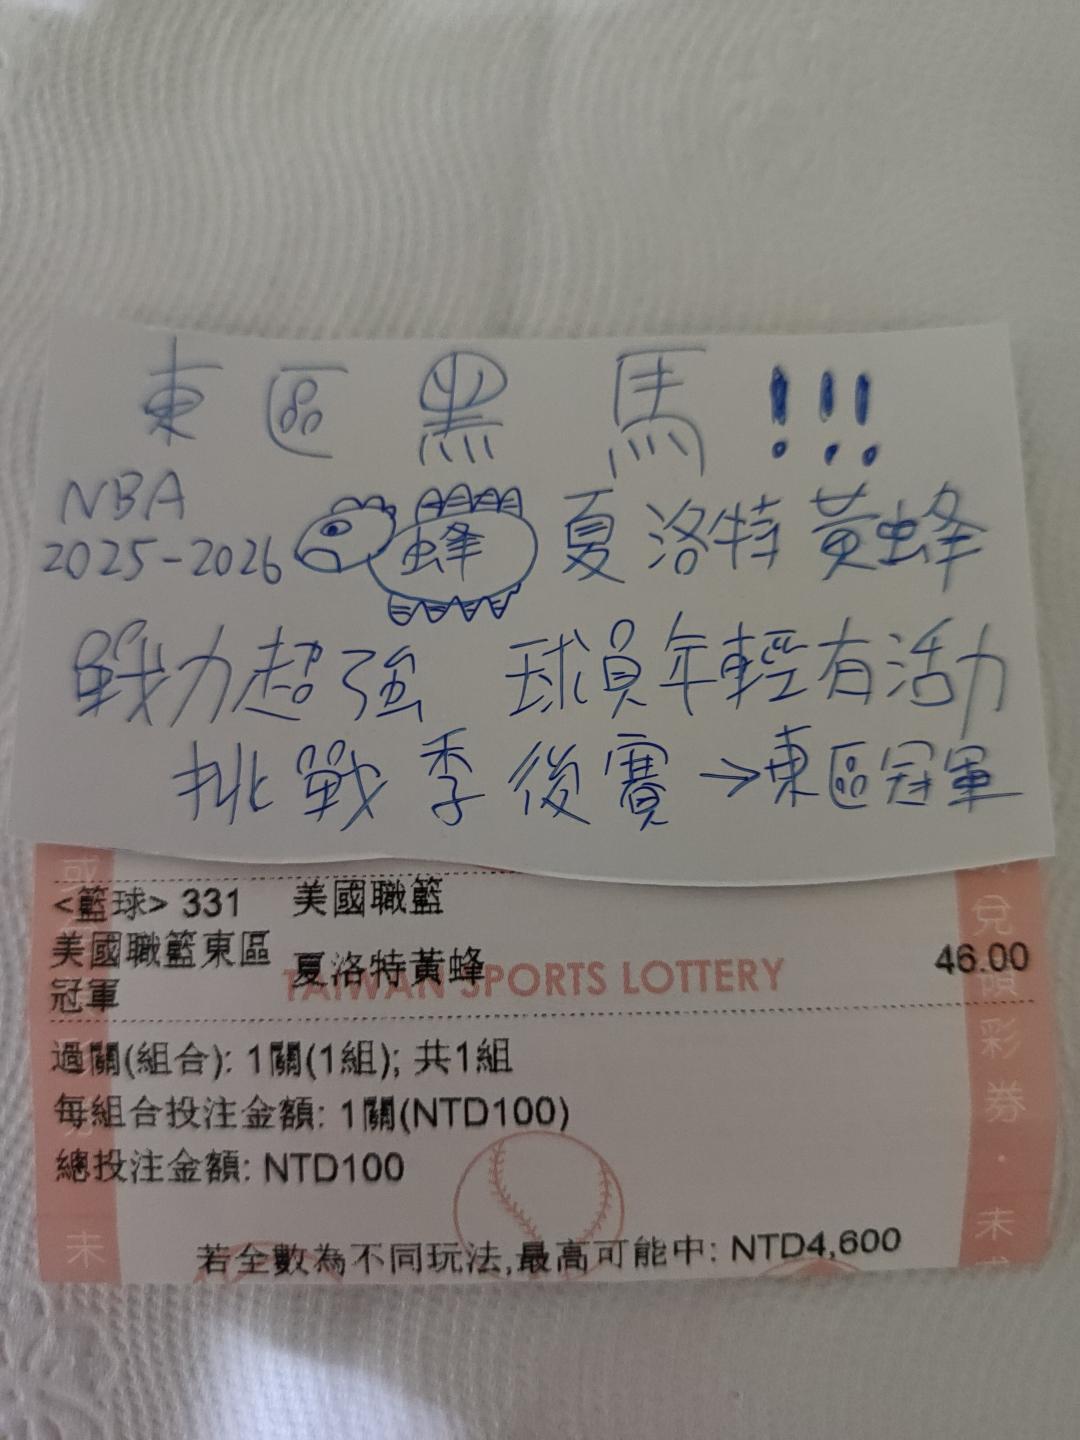 東區黑馬!!!
NBA
2025-2026 蜂 夏洛特黃蜂
戰力超強 球員年輕有活力
挑戰季後賽→東區冠軍
<籃球> 331 美國職籃
美國職籃東區冠軍 夏洛特黃蜂 46.00
TAIWAN SPORTS LOTTERY
過關(組合): 1關(1組); 共1組
每組合投注金額: 1關(NTD100)
總投注金額: NTD100
若全數為不同玩法,最高可能中: NTD4,600
兌領彩券・未
未